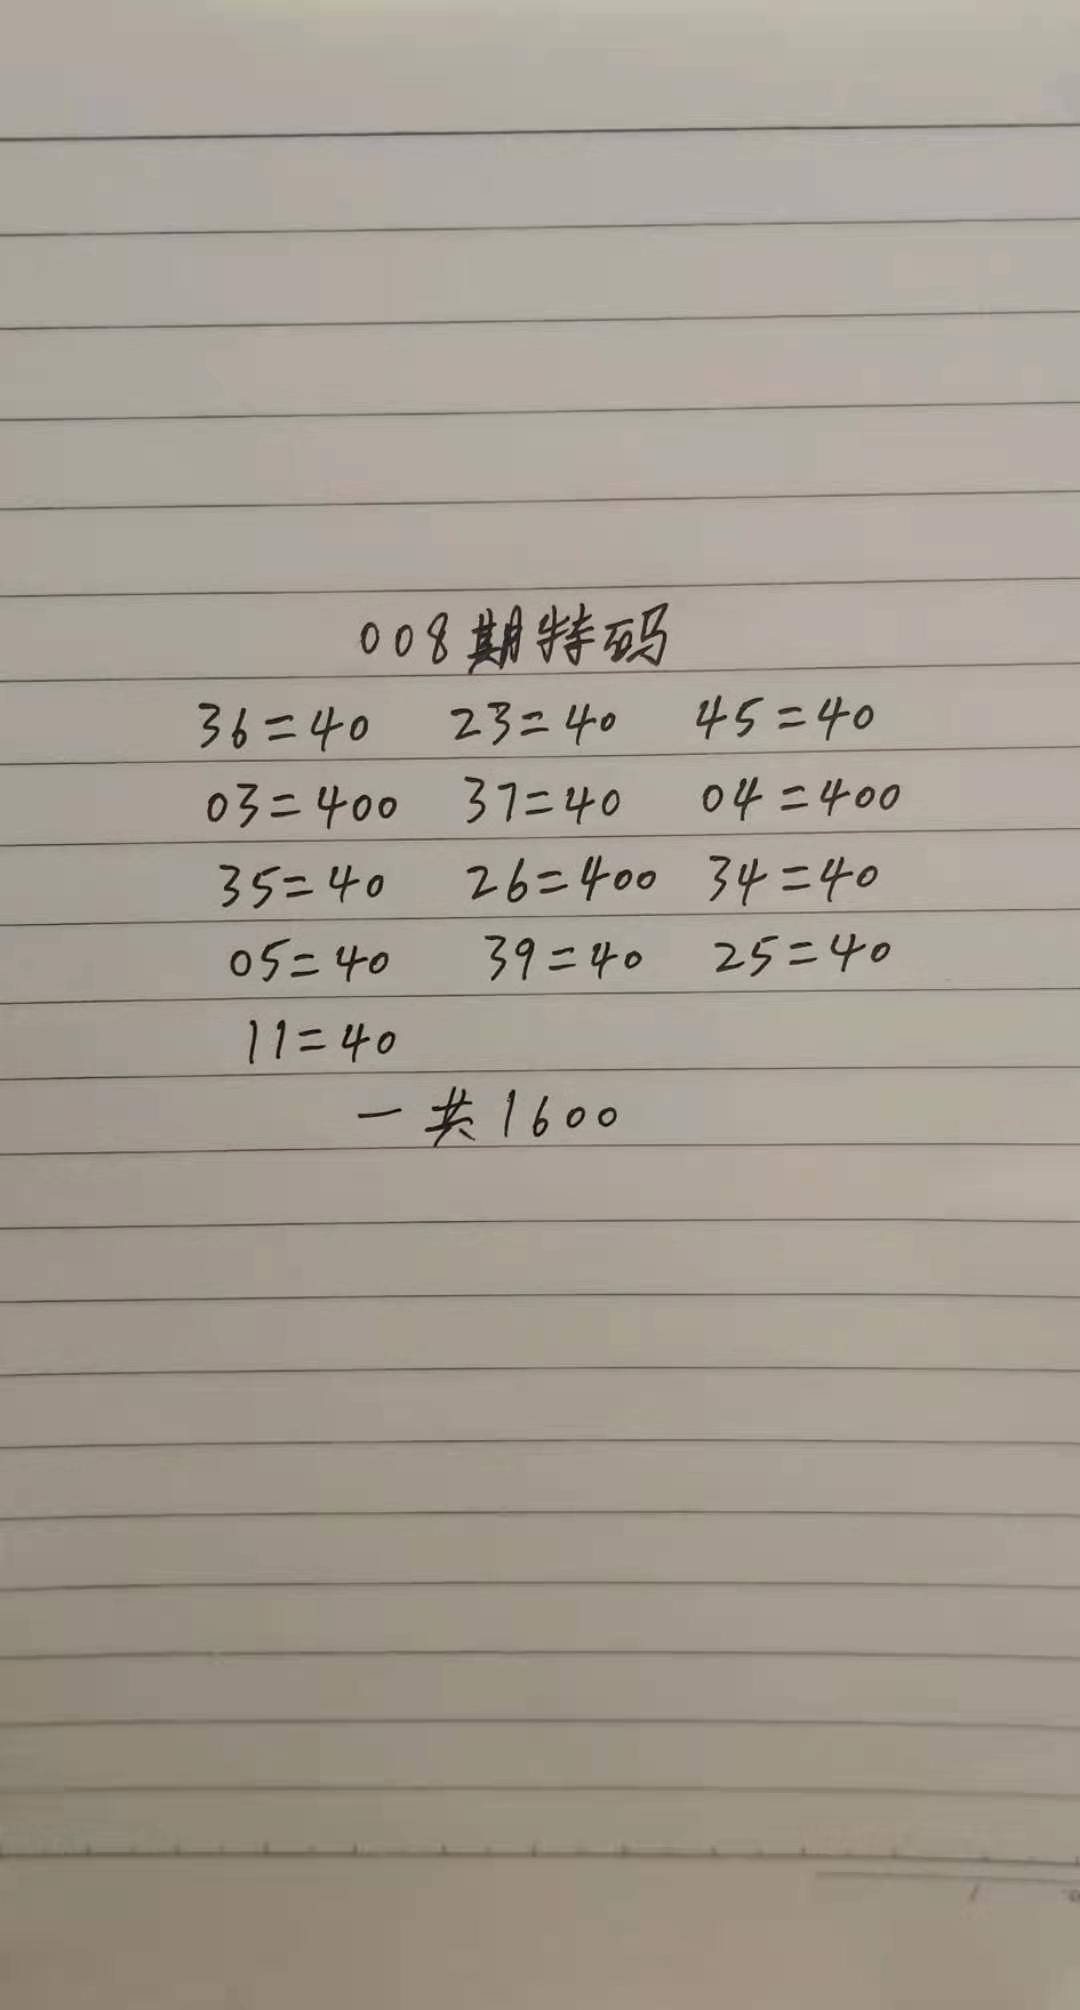 008期特码
36=40 23=40 45=40
03=400 37=40 04=400
35=40 26=400 34=40
05=40 39=40 25=40
11=40
一共1600